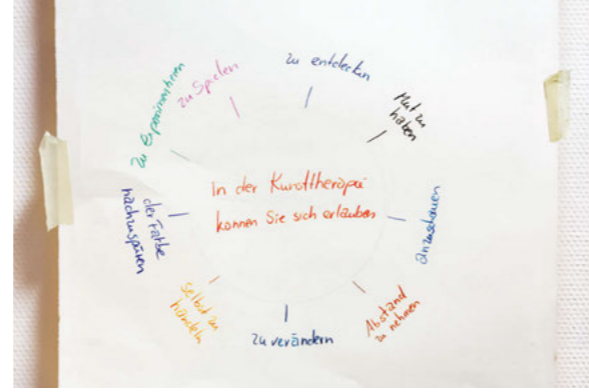 In der Kunsttherapie
können Sie sich erlauben
zu entdecken
Mut zu
haben
anzuschauen
Abstand
zu nehmen
zu verändern
selbst zu
handeln
der Farbe
nachzuspüren
zu Experimentieren
zu Spielen